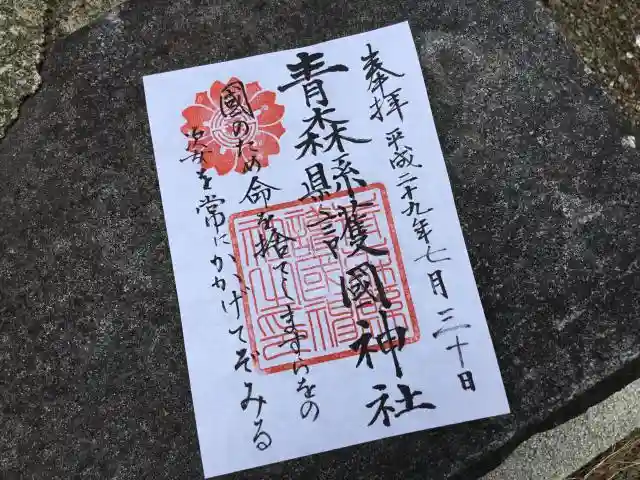 奉拝 平成二十九年七月三十日
青森縣護國神社
國のため命を捨てしますらをの
を常にかかげてぞみる